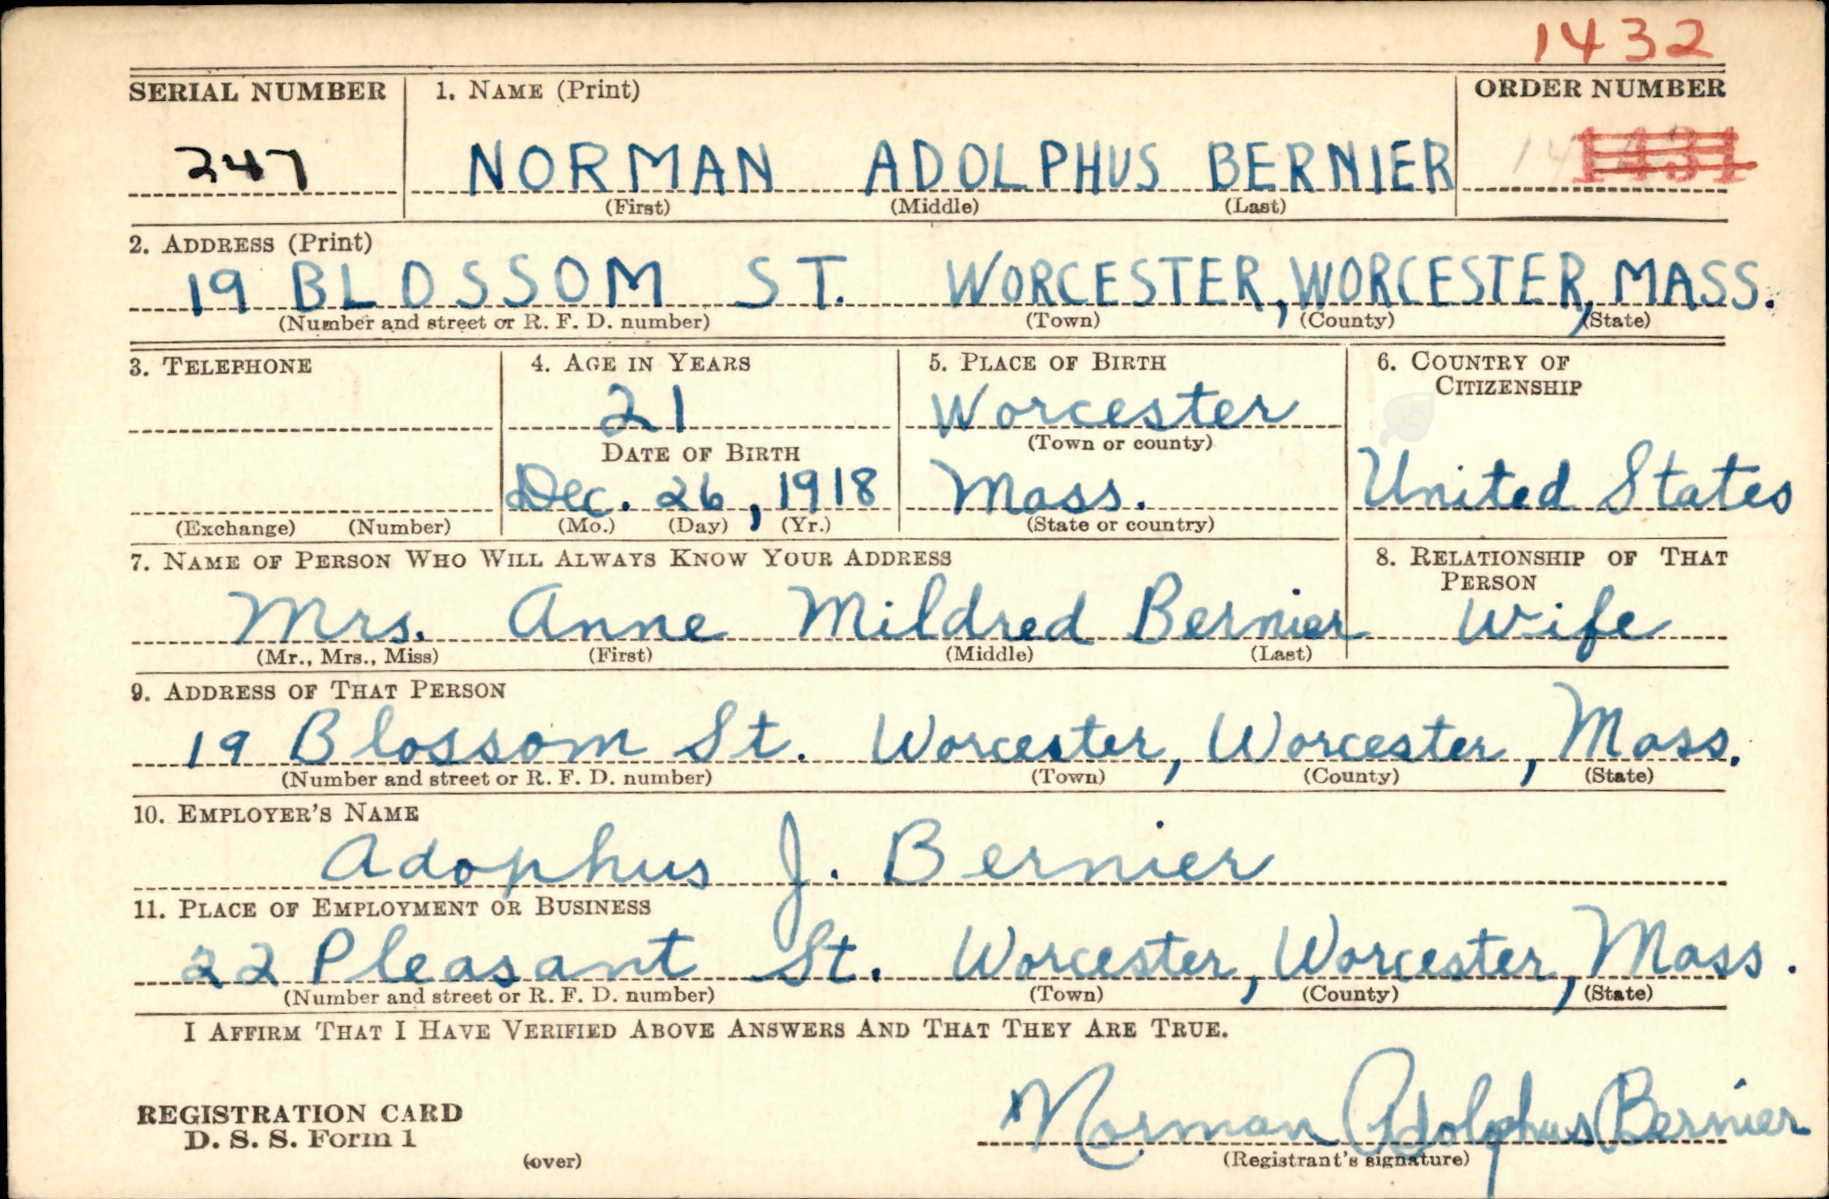 1432
SERIAL NUMBER 1. NAME (Print) ORDER NUMBER
247 NORMAN ADOLPHUS BERNIER 1434
(First) (Middle) (Last)
2. ADDRESS (Print)
19 BLOSSOM ST. WORCESTER, WORCESTER, MASS.
(Number and street or R. F. D. number) (Town) (County) (State)
3. TELEPHONE 4. AGE IN YEARS 5. PLACE OF BIRTH 6. COUNTRY OF
CITIZENSHIP
21 Worcester
DATE OF BIRTH (Town or county)
Dec. 26, 1918 Mass. United States
(Exchange) (Number) (Mo.) (Day) (Yr.) (State or country)
7. NAME OF PERSON WHO WILL ALWAYS KNOW YOUR ADDRESS 8. RELATIONSHIP OF THAT
PERSON
Mrs. Anne Mildred Bernier Wife
(Mr., Mrs., Miss) (First) (Middle) (Last)
9. ADDRESS OF THAT PERSON
19 Blossom St. Worcester, Worcester, Mass.
(Number and street or R. F. D. number) (Town) (County) (State)
10. EMPLOYER'S NAME
Adophus J. Bernier
11. PLACE OF EMPLOYMENT OR BUSINESS
22 Pleasant St. Worcester, Worcester, Mass.
(Number and street or R. F. D. number) (Town) (County) (State)
I AFFIRM THAT I HAVE VERIFIED ABOVE ANSWERS AND THAT THEY ARE TRUE.
REGISTRATION CARD
D. S. S. Form 1 Norman Adolphus Bernier
(over) (Registrant's signature)